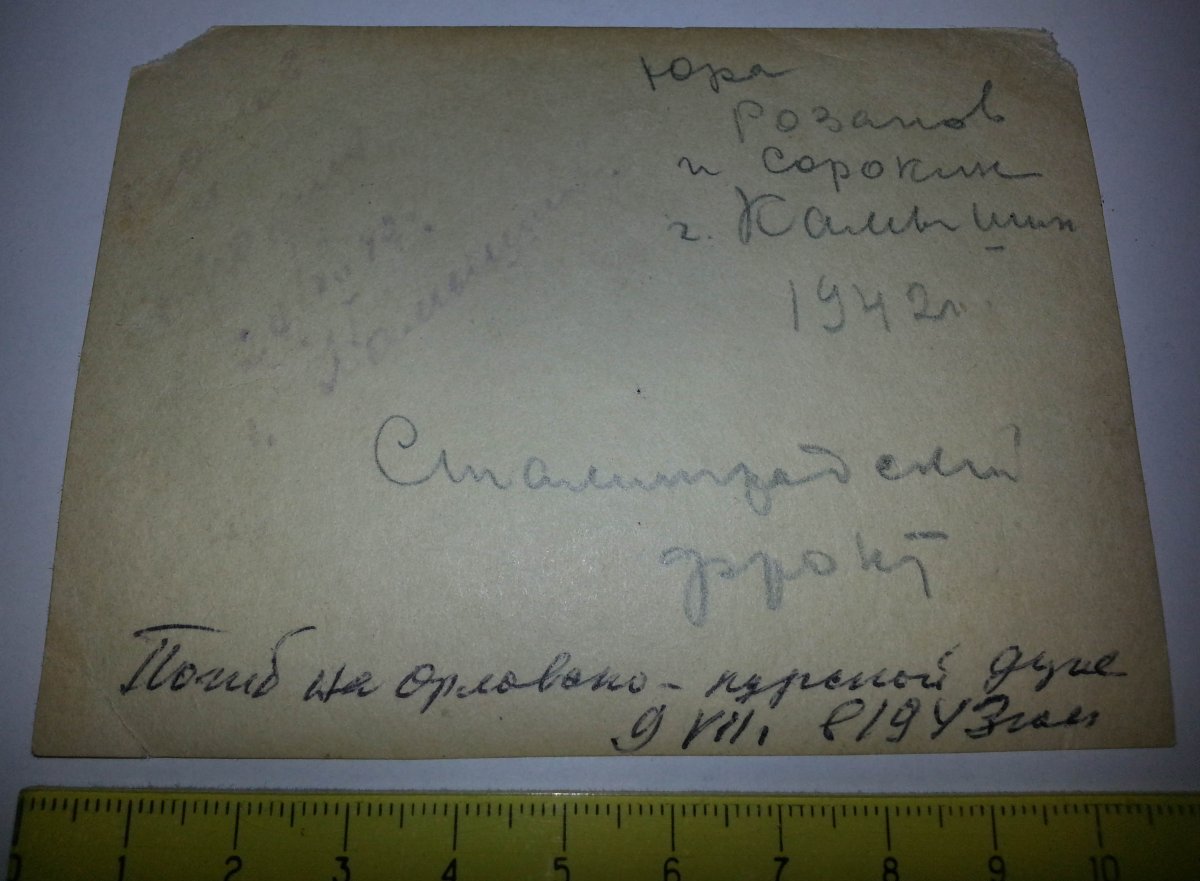 Юра
Розанов
и Сорокин
г. Камышин
1942 г.
20/XII 42г.
г. Камышин
Сталинградский
фронт
Погиб на Орловско-курской дуге
9 VII. в 1943 году
0 1 2 3 4 5 6 7 8 9 10